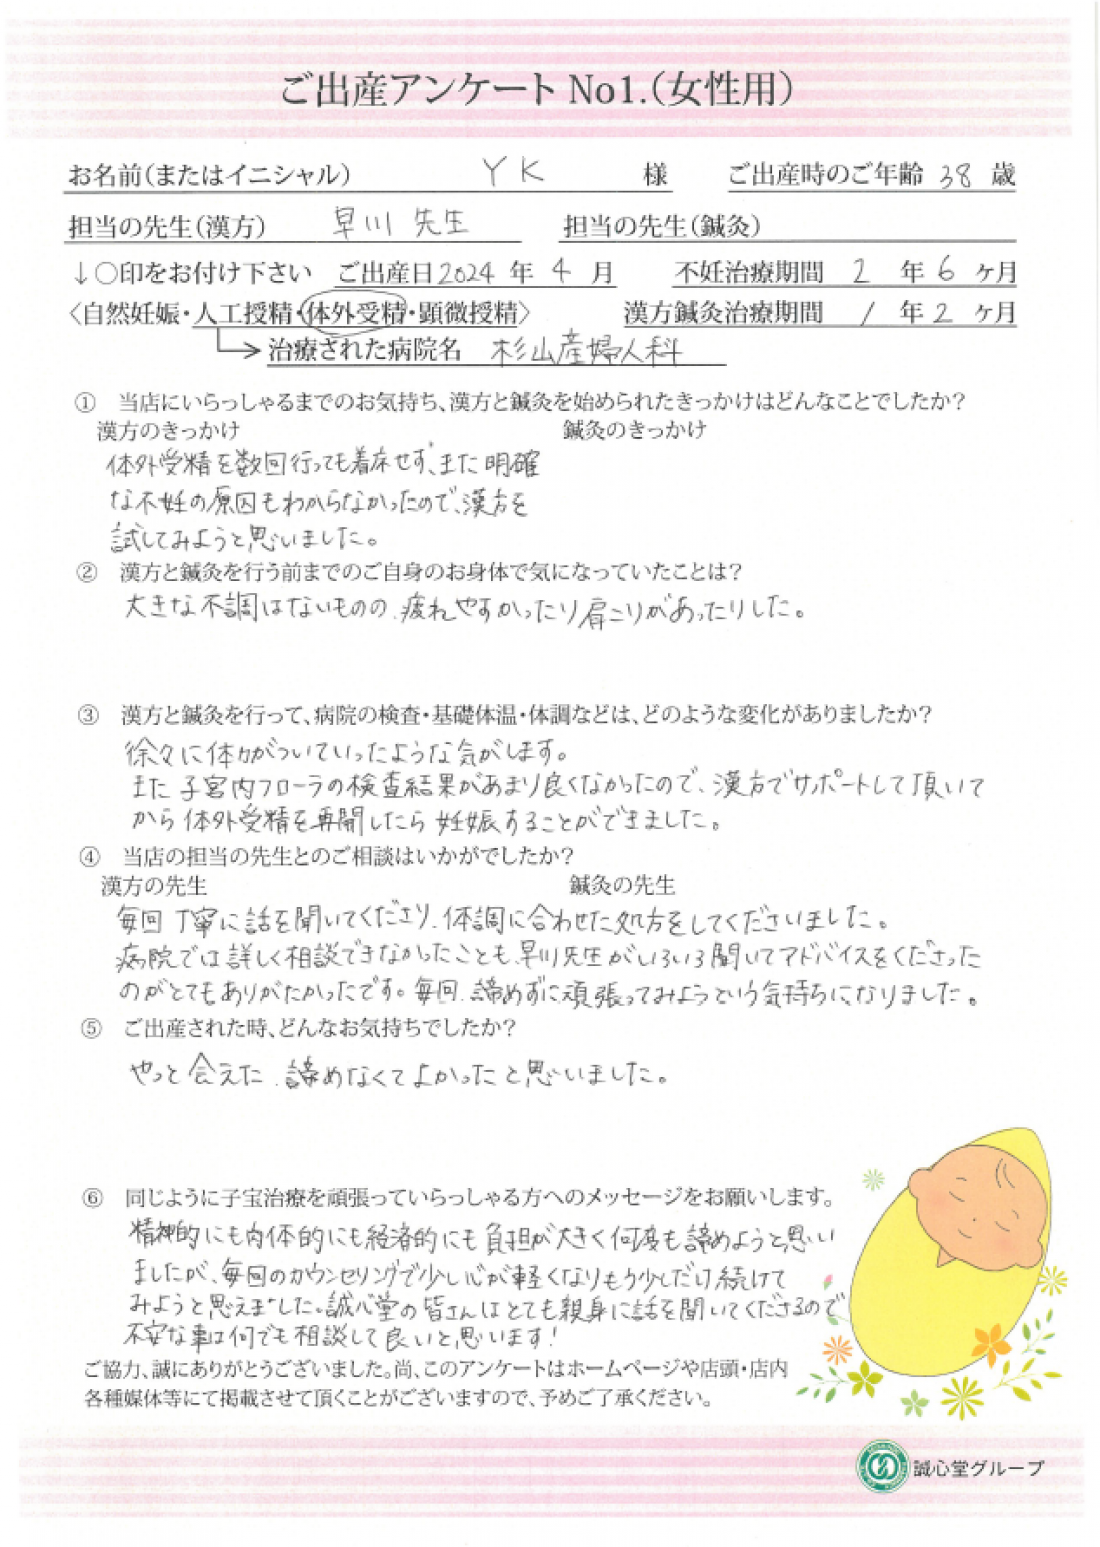 ご出産アンケート No1.(女性用)
お名前(またはイニシャル) YK 様 ご出産時のご年齢 38 歳
担当の先生(漢方) 早川 先生 担当の先生(鍼灸)
↓○印をお付け下さい ご出産日2024 年 4 月 不妊治療期間 2 年 6 ヶ月
〈自然妊娠・人工授精・体外受精・顕微授精〉 漢方鍼灸治療期間 1 年 2 ヶ月
治療された病院名 杉山産婦人科
① 当店にいらっしゃるまでのお気持ち、漢方と鍼灸を始められたきっかけはどんなことでしたか?
漢方のきっかけ 鍼灸のきっかけ
体外受精を数回行っても着床せず、また明確
な不妊の原因もわからなかったので、漢方を
試してみようと思いました。
② 漢方と鍼灸を行う前までのご自身のお身体で気になっていたことは?
大きな不調はないものの、疲れやすかったり肩こりがあったりした。
③ 漢方と鍼灸を行って、病院の検査・基礎体温・体調などは、どのような変化がありましたか?
徐々に体力がついていったような気がします。
また子宮内フローラの検査結果があまり良くなかったので、漢方でサポートして頂いて
から体外受精を再開したら妊娠することができました。
④ 当店の担当の先生とのご相談はいかがでしたか?
漢方の先生 鍼灸の先生
毎回丁寧に話を聞いてくださり、体調に合わせた処方をしてくださいました。
病院では詳しく相談できなかったことも、早川先生がいろいろ聞いてアドバイスをくださった
のがとてもありがたかったです。毎回、諦めずに頑張ってみようという気持ちになりました。
⑤ ご出産された時、どんなお気持ちでしたか?
やっと会えた、諦めなくてよかったと思いました。
⑥ 同じように子宝治療を頑張っていらっしゃる方へのメッセージをお願いします。
精神的にも肉体的にも経済的にも負担が大きく何度も諦めようと思い
ましたが、毎回のカウンセリングで少し心が軽くなりもう少しだけ続けて
みようと思えました。誠心堂の皆さんはとても親身に話を聞いてくださるので
不安な事は何でも相談して良いと思います!
ご協力、誠にありがとうございました。尚、このアンケートはホームページや店頭・店内
各種媒体等にて掲載させて頂くことがございますので、予めご了承ください。
誠心堂グループ